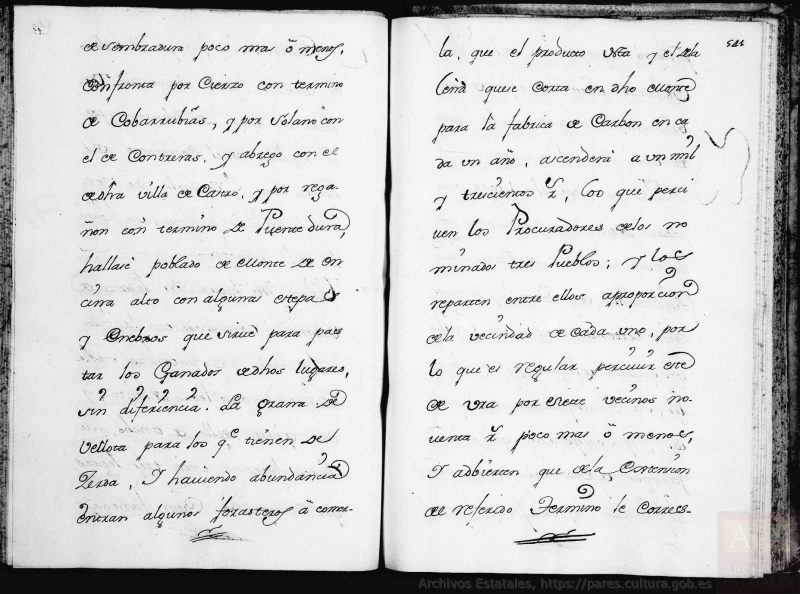 de sembradura poco mas ô menos,
Confronta por Cierzo con termino
de Cobarrubias, y por solano con
el de Contreras, y abrego con el
de dha villa de Castro, y por rega-
ñon con termino de Puentedura,
hallase poblado de Monte de en
cina alto con algunas estepas
y Enebros que sirve para pas
tar los Ganados de dhos lugares,
sin diferencia. La grama de
vellota para los qe tienen de
Zerda, Y haviendo abundancia
entran algunos forasteros â comer-
541
la, que el producto de esta y el de la
leña que se corta en dho Monte
para la fabrica de Carbon en ca
da un año, ascenderà a un mil
y trescientos rs, los que perci
ven los Procuradores de los no
minados tres Pueblos; y los
reparten entre ellos aproporcion
de la vecindad de cada uno, por
lo que es regular percivir este
de Ura por siete vecinos no-
venta rs poco mas ô menos,
Y adbierten que de la Extension
de referido Termino le corres-
Archivos Estatales, https://pares.cultura.gob.es